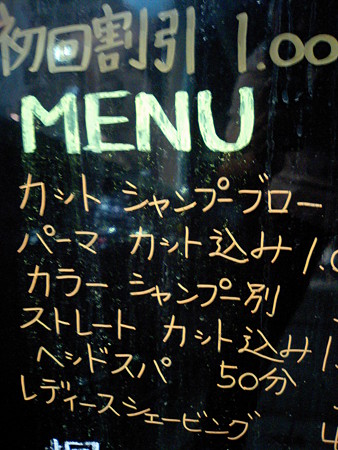 初回割引 1.00
MENU
カット シャンプーブロー
パーマ カット込み 1.0
カラー シャンプー別
ストレート カット込み 1.
ヘッドスパ 50分
レディースシェービング 4